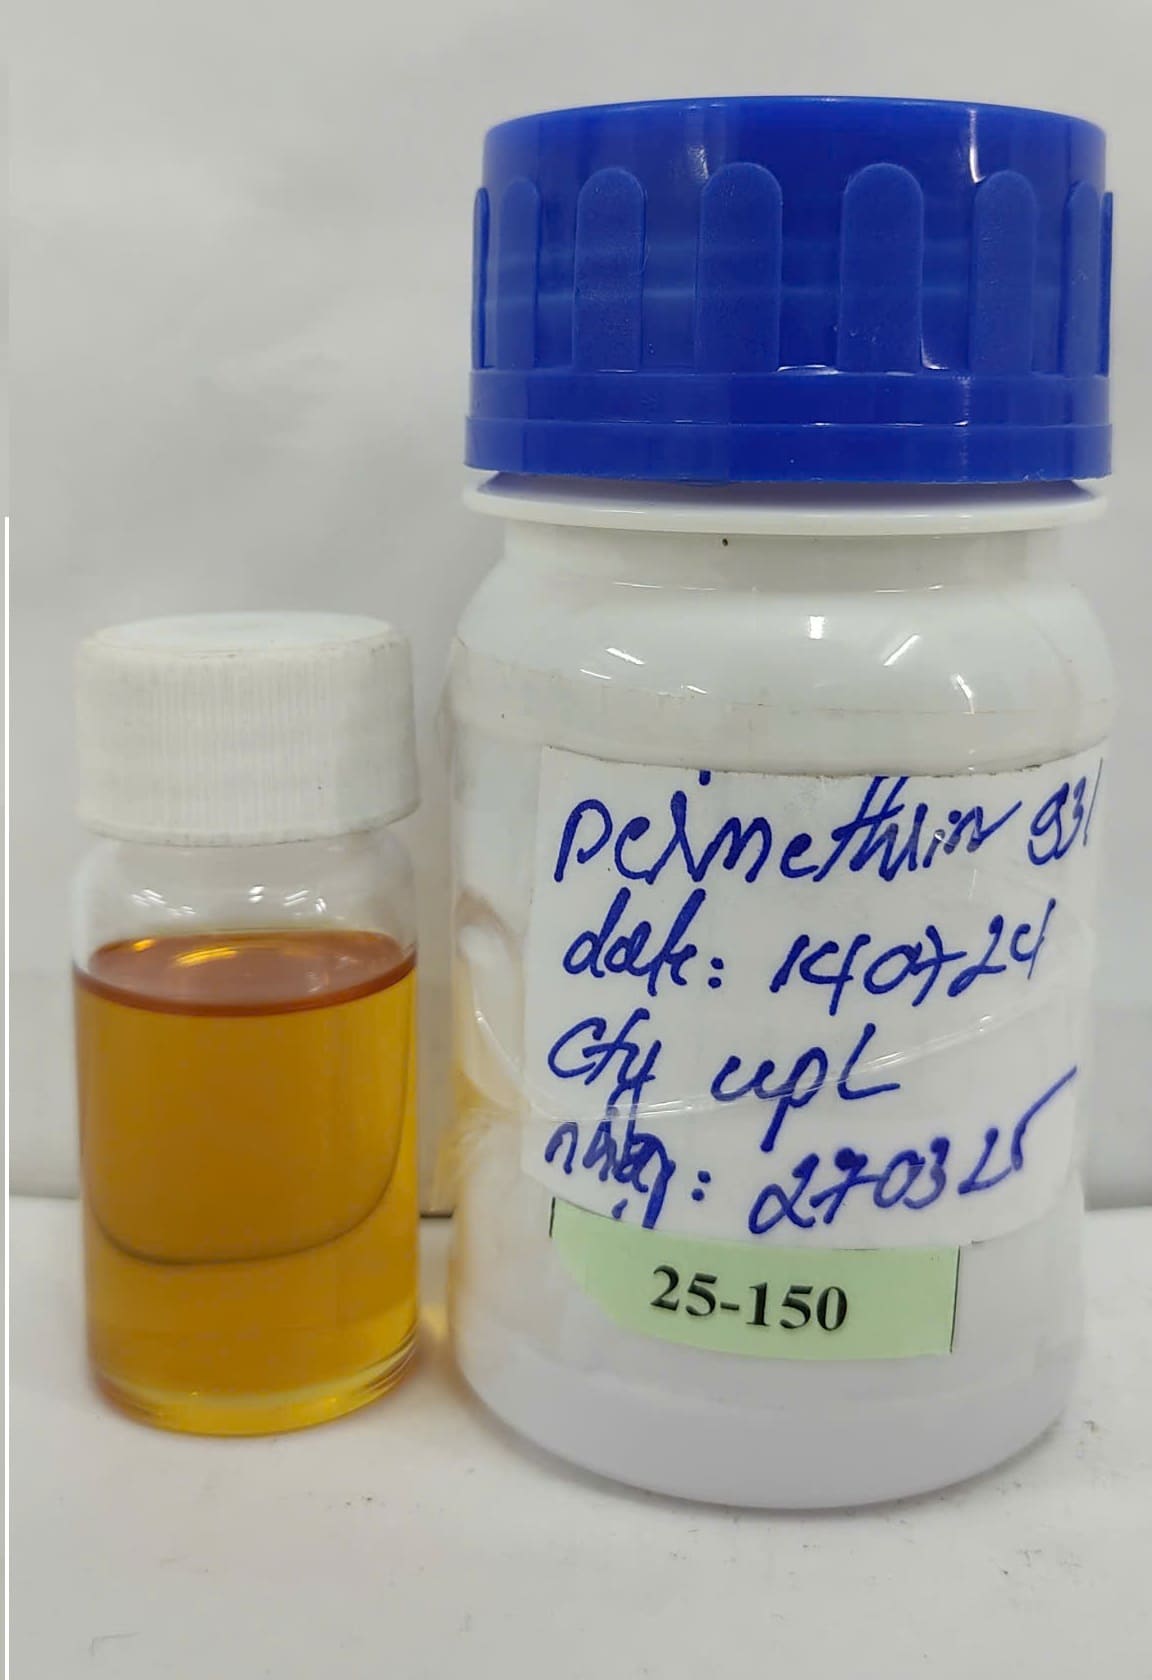 Permethrin 93%
date: 140724
Cty UPL
nhập: 270325
25-150